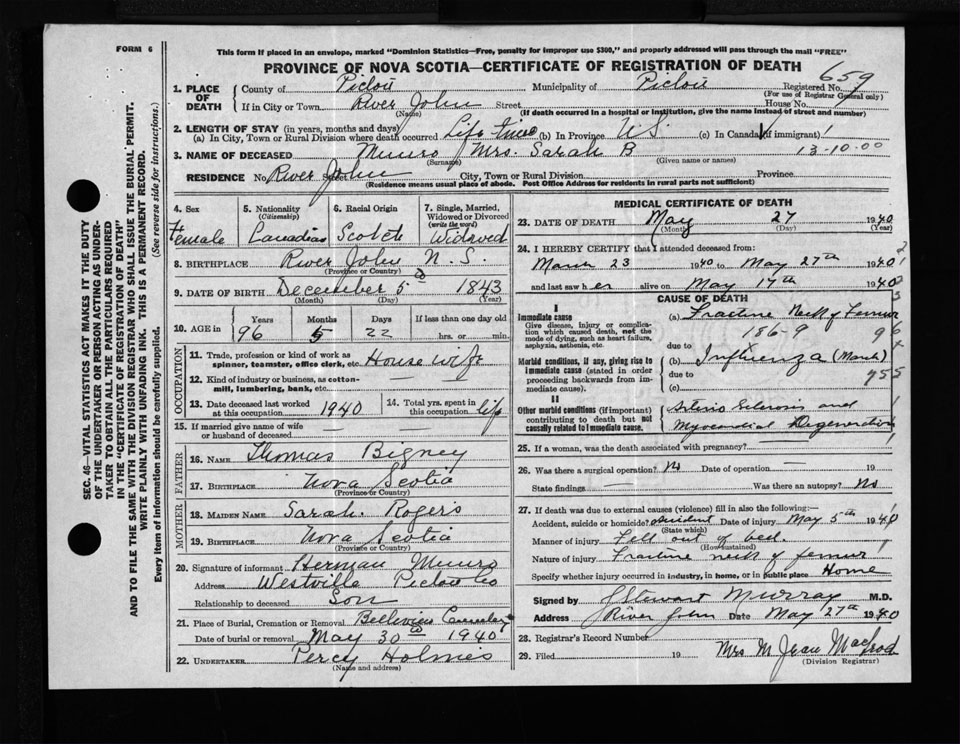 FORM 6
This form if placed in an envelope, marked "Dominion Statistics—Free, penalty for improper use $300," and properly addressed will pass through the mail "FREE"
PROVINCE OF NOVA SCOTIA—CERTIFICATE OF REGISTRATION OF DEATH
SEC. 46—VITAL STATISTICS ACT MAKES IT THE DUTY
OF THE UNDERTAKER OR PERSON ACTING AS UNDER-
TAKER TO OBTAIN ALL THE PARTICULARS REQUIRED
IN THE "CERTIFICATE OF REGISTRATION OF DEATH"
AND TO FILE THE SAME WITH THE DIVISION REGISTRAR WHO SHALL ISSUE THE BURIAL PERMIT.
WRITE PLAINLY WITH UNFADING INK. THIS IS A PERMANENT RECORD.
Every item of information should be carefully supplied. (See reverse side for instructions.)
1. PLACE OF DEATH
County of Pictou Municipality of Pictou Registered No. 659
(For use of Registrar General only)
If in City or Town River John Street House No.
(Name) (If death occurred in a hospital or institution, give the name instead of street and number)
2. LENGTH OF STAY (in years, months and days)
(a) In City, Town or Rural Division where death occurred Life time (b) In Province N.S. (c) In Canada (if immigrant)
3. NAME OF DECEASED Munro Mrs. Sarah B 13-10-00
(Surname) (Given name or names)
RESIDENCE No. River John Street City, Town or Rural Division Province
(Residence means usual place of abode. Post Office Address for residents in rural parts not sufficient)
4. Sex Female
5. Nationality (Citizenship) Canadian
6. Racial Origin Scotch
7. Single, Married, Widowed or Divorced (write the word) Widowed
8. BIRTHPLACE River John N.S.
(Province or Country)
9. DATE OF BIRTH December 5 1843
(Month) (Day) (Year)
10. AGE in Years Months Days If less than one day old
96 5 22 hrs. or min.
OCCUPATION
11. Trade, profession or kind of work as spinner, teamster, office clerk, etc. Housewife
12. Kind of industry or business, as cotton-mill, lumbering, bank, etc. —
13. Date deceased last worked at this occupation 1940
14. Total yrs. spent in this occupation life
15. If married give name of wife or husband of deceased
FATHER
16. NAME Thomas Bigney
17. BIRTHPLACE Nova Scotia
(Province or Country)
MOTHER
18. MAIDEN NAME Sarah Rogers
19. BIRTHPLACE Nova Scotia
(Province or Country)
20. Signature of informant Herman Munro
Address Westville Pictou Co
Relationship to deceased Son
21. Place of Burial, Cremation or Removal
Date of burial or removal May 30 1940
22. UNDERTAKER Percy Holmes
(Name and address)
MEDICAL CERTIFICATE OF DEATH
23. DATE OF DEATH May 27 1940
(Month) (Day) (Year)
24. I HEREBY CERTIFY that I attended deceased from:
March 23 1940 to May 27th 1940
and last saw her alive on May 17th 1940
CAUSE OF DEATH
I
Immediate cause
Give disease, injury or complication which caused death, not the mode of dying, such as heart failure, asphyxia, asthenia, etc.
(a) Fracture Neck of Femur
186-9
due to
Morbid conditions, if any, giving rise to immediate cause (stated in order proceeding backwards from immediate cause).
(b) Influenza (March)
due to
(c)
II
Other morbid conditions (if important) contributing to death but not causally related to immediate cause.
Arterio Sclerosis and
Myocardial Degeneration
25. If a woman, was the death associated with pregnancy? —
26. Was there a surgical operation? No Date of operation — 19
State findings — Was there an autopsy? No
27. If death was due to external causes (violence) fill in also the following:
Accident, suicide or homicide? accident Date of injury May 5th 1940
(State which)
Manner of injury Fell out of bed.
(How sustained)
Nature of injury Fracture neck of femur
Specify whether injury occurred in industry, in home, or in public place Home
Signed by J Stewart Murray M.D.
Address River John Date May 27th 1940
28. Registrar's Record Number
29. Filed 19 Mrs M Jean MacLeod
(Division Registrar)